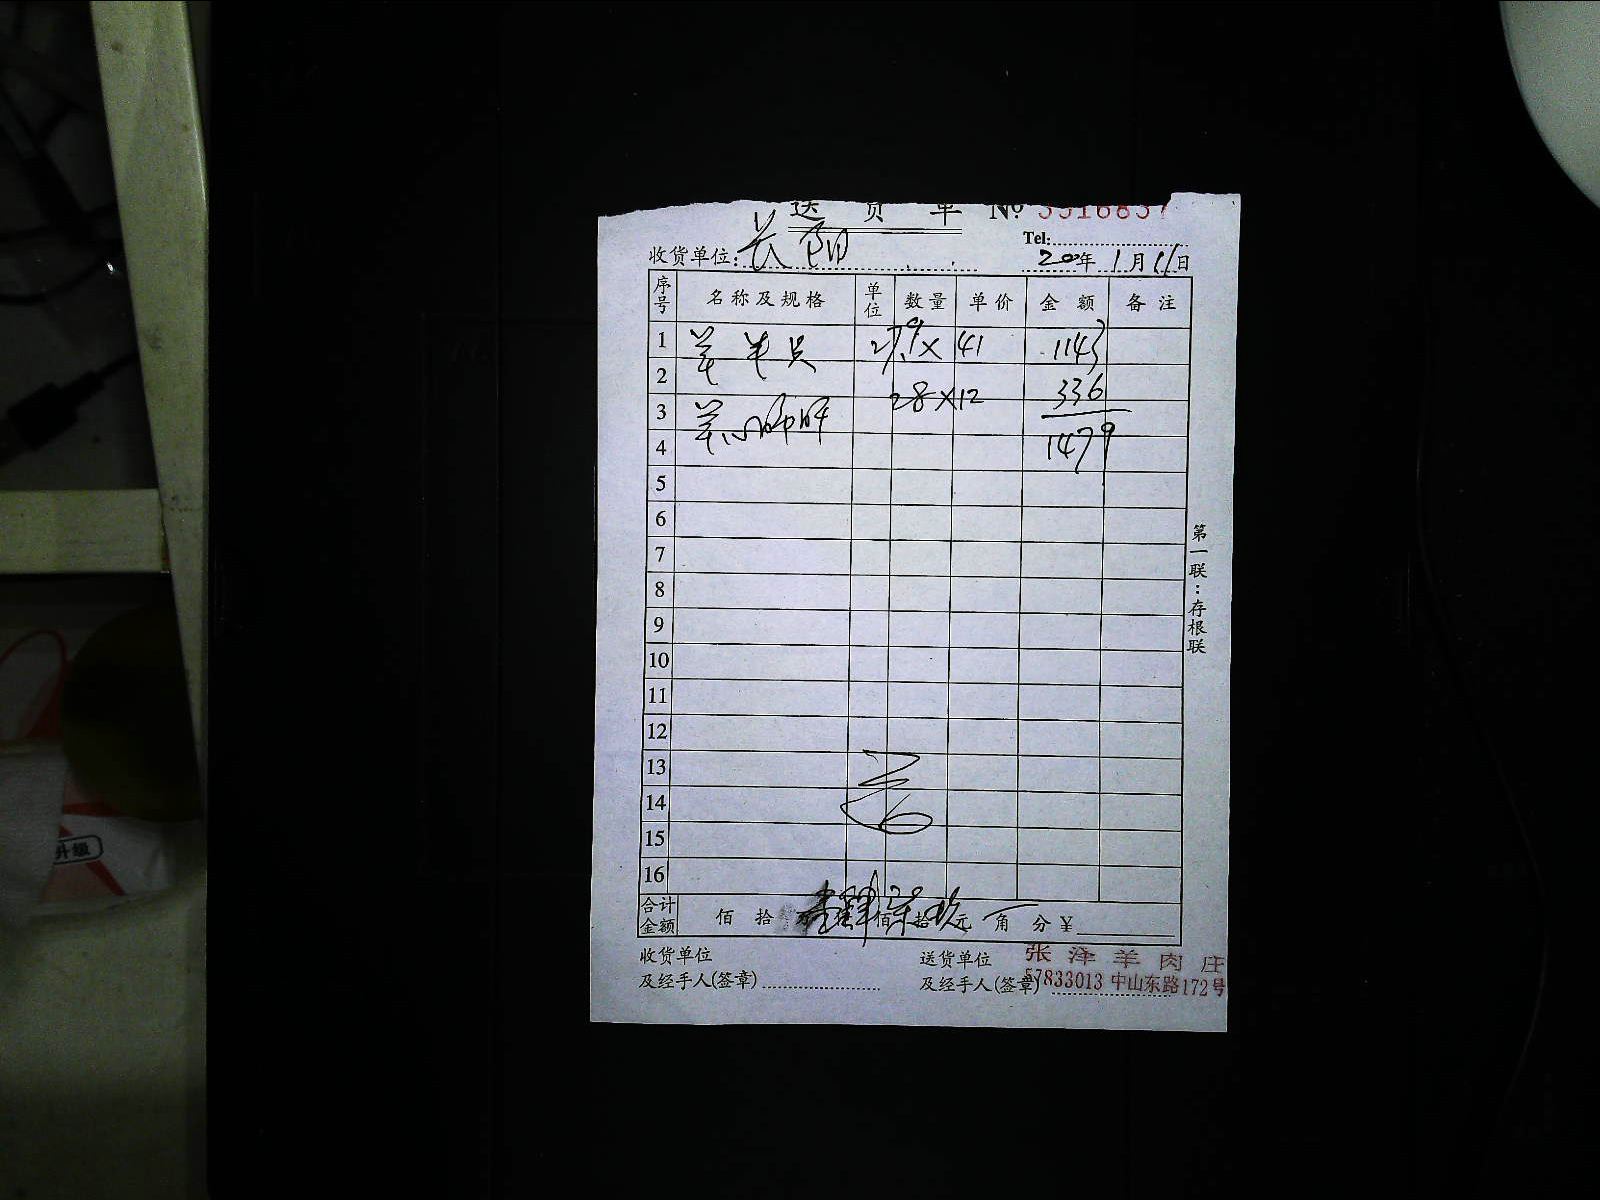 送 货 单 № 3516837
Tel:
收货单位: 长阳 20年 1月 11日
序号 名称及规格 单位 数量 单价 金额 备注
1 羊 27.9 × 41 1143
2 28 × 12 336
3 羊心
4 1479
5
6
7
8
9
10
11
12
13
14
15
16
合计金额 佰 拾 万 壹仟 肆佰 柒拾 玖元 角 分 ¥
收货单位 送货单位 张泽羊肉庄
及经手人(签章) 及经手人(签章) 57833013 中山东路172号
第一联:存根联
升级